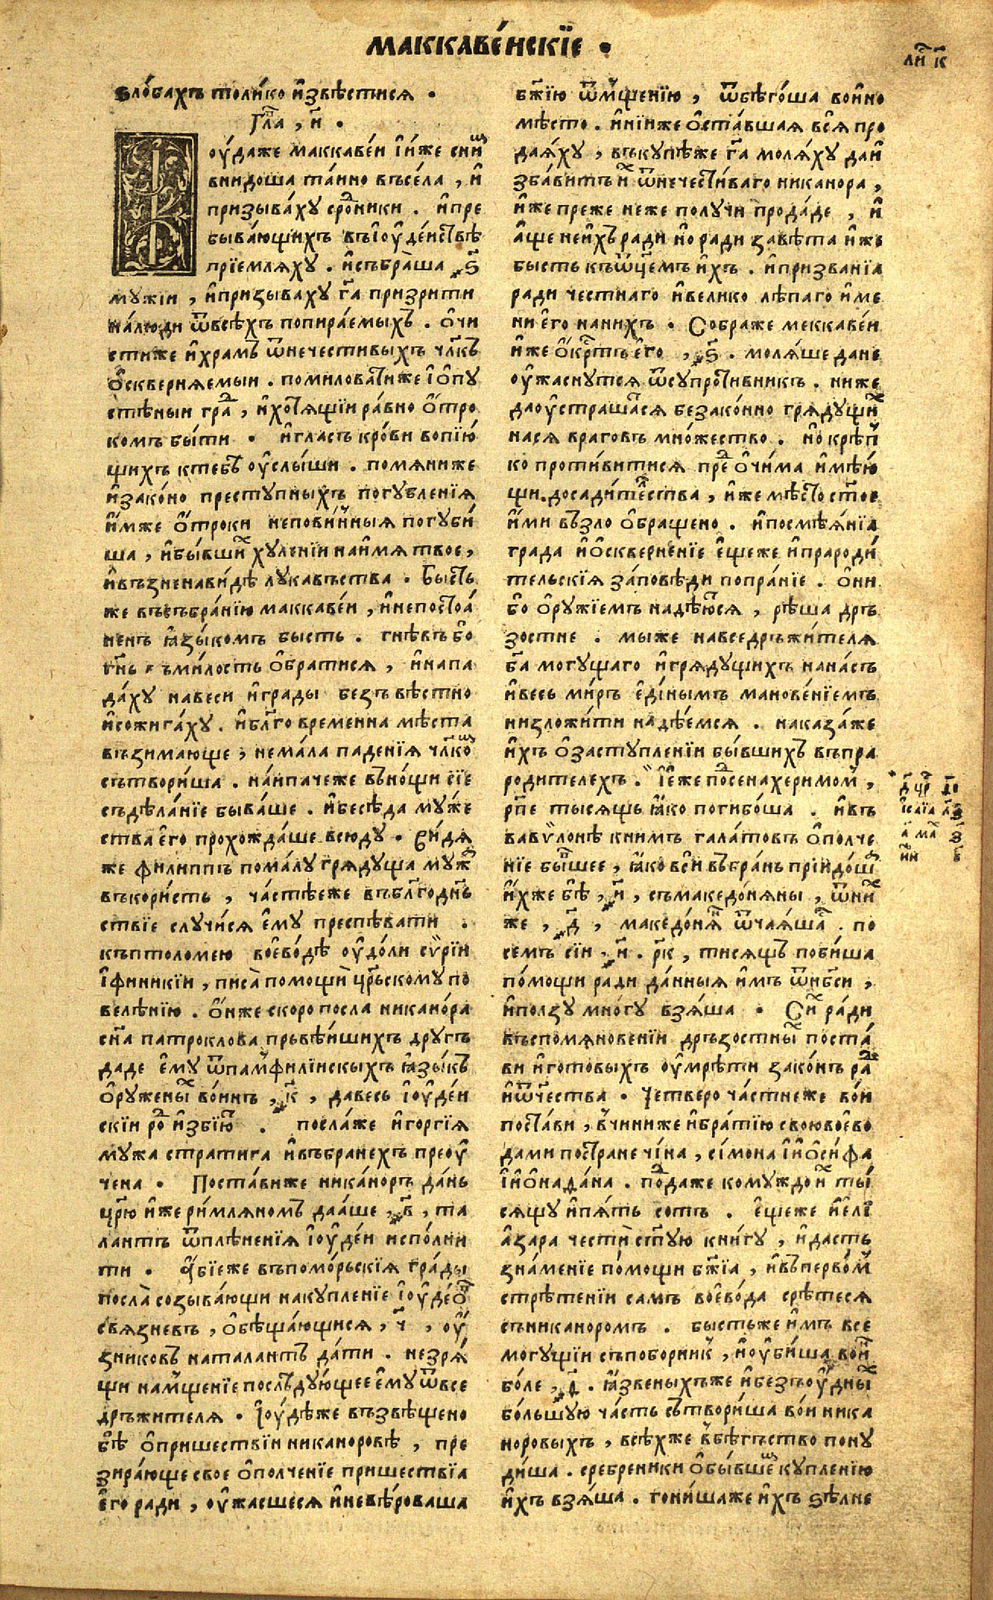 маккаве́искїе •
ли҃ к҃
ѕло́бахъ толи́ко и҆звѣстися •
Гла̑ , и҃ •
оу҆́даже маккаве́и и҆ и҆́же сни́мъ
внидоша та́ино въсе́ла , и҆
призыва́ху сро́дники . и҆пре
быва́ющихъ въїоуде́иствѣ
прїемляху . и҆събра́ша ҂ѕ҃
мужїи , и҆призываху г҃а призрити
на́люди ѿвсѣ́хъ попира́емыхъ . о҆чи
стиже и҆храмъ ѿнечестивыхъ чл҃къ
о҆скверняемыи . помиловатиже и҆ о҆пу
стѣ́ныи гра́д , и҆хотящїи ра́вно о҆́тро
комъ бы́ти • и҆гласъ кро́ви вопїю
щихъ ктебѣ оу҆слы́ши . помяниже
и҆зако́но преступныхъ погубленїя
и҆́мже о҆́троки непови́нныя погуби́
ша , и҆бы́вших хуленїи наи҆мя твое ,
и҆възненави́дѣ лука́вьства • Бы́сть
же въсъбра́нїю маккаве́и , и҆непостоя́
ненъ ꙗ҆зы́комъ бысть . гнѣвъ бо
гн҃ь въми́лость о҆братися , и҆напа
да́ху навеси и҆гра́ды безъ вѣстно
и҆сожига́ху . и҆бл҃го временна мѣста
възимающе ; нема́ла паденїя чл҃комъ
сътвори́ша . на́ипачеже вънощи сїе
съдѣ́ланїе быва́ше . и҆бесѣ́да му́же
ства е҆го̀ прохожда́ше всюду • Ви́дя
же филиппъ пома́лу грядуща мужа
въкори́сть , ча́стѣеже въбл҃годнь
ствїе случи́ся е҆му преспѣвати .
къптоломею воево́дѣ оу҆до́ли сѵрїи
и҆ финикїи , писа̀ помощи̑ цр҃ьскому по
велѣ́нїю . О҆́нже скоро посла никано́ра
сн҃а патроклова пръвѣ́ишихъ другъ
даде е҆му̀ ѿпамфилїискыхъ ꙗ҆зы́къ
о҆руже́ны во́инъ ҂к҃ , давесь їоуде́и
скїи ро́д и҆збїю́т . посла́же и҆горгїя
мужа стратига и҆въбранехъ преоу҆
чена • Поста́виже никано́ръ да́нь
цр҃ю и҆́же ри́мляномъ дааше ҂в҃ , та
лантъ ѿплѣ́ненїя їоуде́и испо́лни
ти • А҆́бїеже въпомо́рьскїя гра́ды
посла̀ созыва́ющи накупле́нїе їоуде́о
свя́зневъ , о҆бѣща́ющися , ч҃ , оу҆
зниковъ наталантъ да́ти . незря́
щи намщенїе послѣ́дующее е҆му ѿвсе
дръжителя • їоудѣ́же възвѣщено
бѣ̀ о҆пришествїи никано́ровѣ , пре
зира́юще свое о҆полче́нїе пришествїа
е҆го ради , оу҆жа́сшеся и҆невѣ́роваша
бж҃їю ѿмщенїю , ѿбѣго́ша во и҆но
мѣ́сто . и҆нїиже о҆ста́вшая вся̀ про
дая́ху , въкупѣже г҃а моля́ху даи҆
зба́витъ их ѿнечести́ваго никанора ,
и҆́же преже неже получи прода́де , и҆
а҆́ще неи҆́хъ ради но ради заве́та и҆́жъ
бысть къѿц҃емъ и҆́хъ . и҆призва́нїа
ради честна́го и҆вели́ко лѣ́паго и҆ме
ни е҆го на́нихъ • Собра́же меккаве́и
и҆́же о҆́кр҃тъ е҆го , ҂ѕ҃ . моля́ше дане
оу҆жаснутся ѿсупротивникъ . ниже
даоу҆страша́тся безако́нно гряду́щих
нася враго́въ мно́жество . но крѣ́п
ко проти́витися пред о҆чи́ма и҆мѣ́ю
щи досади́телства , и҆́же мѣсто ст҃ое
и҆́ми въ́зло о҆браще́но . и҆посмѣя́нїа
гра́да и҆о҆скверне́нїе е҆́щеже и҆прароди́
тельскїя за́повѣди попра́нїе . о҆́ни
бо о҆ру́жїемъ надѣ́ются , рѣ́ша дръ
зостне . мыже навсе дръжи́теля
бг҃а могущаго и҆гряду́щихъ нана́съ
и҆ве́сь миръ е҆ди́нымъ манове́нїемъ
низложи́ти надѣ́емся . наказа́же
и҆́хъ о҆заступле́нїи бы́вшихъ въпра
роди́телехъ . І҆е́же подсенахеримом ,
рп҃е ты́сящь ꙗ҆́ко погибо́ша . и҆въ
вавѵлонѣ книмъ гала́товъ о҆полче
нїе бы́вшее , ꙗ҆́ко всѝ въбра́нь прїидо́ша
и҆́хже бѣ̀ ҂и҃ , съмакедо́няны , ѿни
же , ҂д҃ , македо́ням ѿчая́шася . по
семъ сїи ҂и҃ . рк҃ , тисящъ поби́ша
по́мощи ради да́нныя и҆́мъ ѿнб҃си ,
и҆ползу мно́гу взя́ша • Сих ра́ди
въспомянове́нїи дръзостны́ поста́
ви и҆готовыхъ оу҆мрѣ́ти зако́нъ ра́ди
и҆ѿчества • Четверо ча́стнеже во́и
поста́ви , вчи́ниже и҆бра́тїю своювоево
дами постра́не чи́на , си́мона и҆ и҆о́сифа
и҆ и҆о҆нада́на . подаже кому́ждо их ты́
сящу и҆пя́ть сотъ . е҆щеже и҆ель
а҆за́ра чести̑ ст҃ую кни́гу , и҆да́стъ
зна́менїе по́мощи бж҃їа , и҆въпервом
стрѣ́тенїи самъ воево́да срѣ́теся
съникано́ромъ . бы́стьже и҆́мъ все
могу́щїи съпобо́рник , и҆оу҆би́ша вои
бо́ле , ҂д҃ . ꙗ҆звеныхъже и҆безъоу҆́дны
бо́льшую часть сътвори́ша вои ника
норовыхъ , всѣ́хже въбѣгъство пону
ди́ша . сребреники о҆бы́вшем купле́нїю
и҆́хъ взя́ша . гони́шаже и҆́хъ ѕѣ́лне